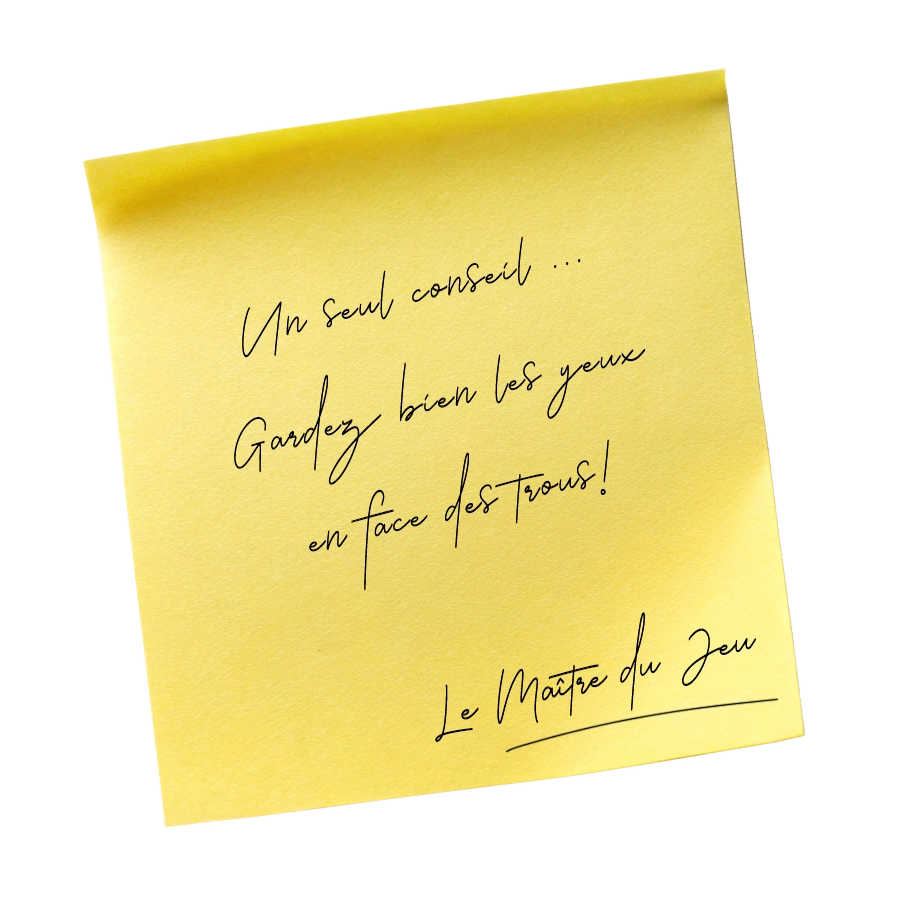 Un seul conseil ...
Gardez bien les yeux
en face des trous!
Le Maître du Jeu